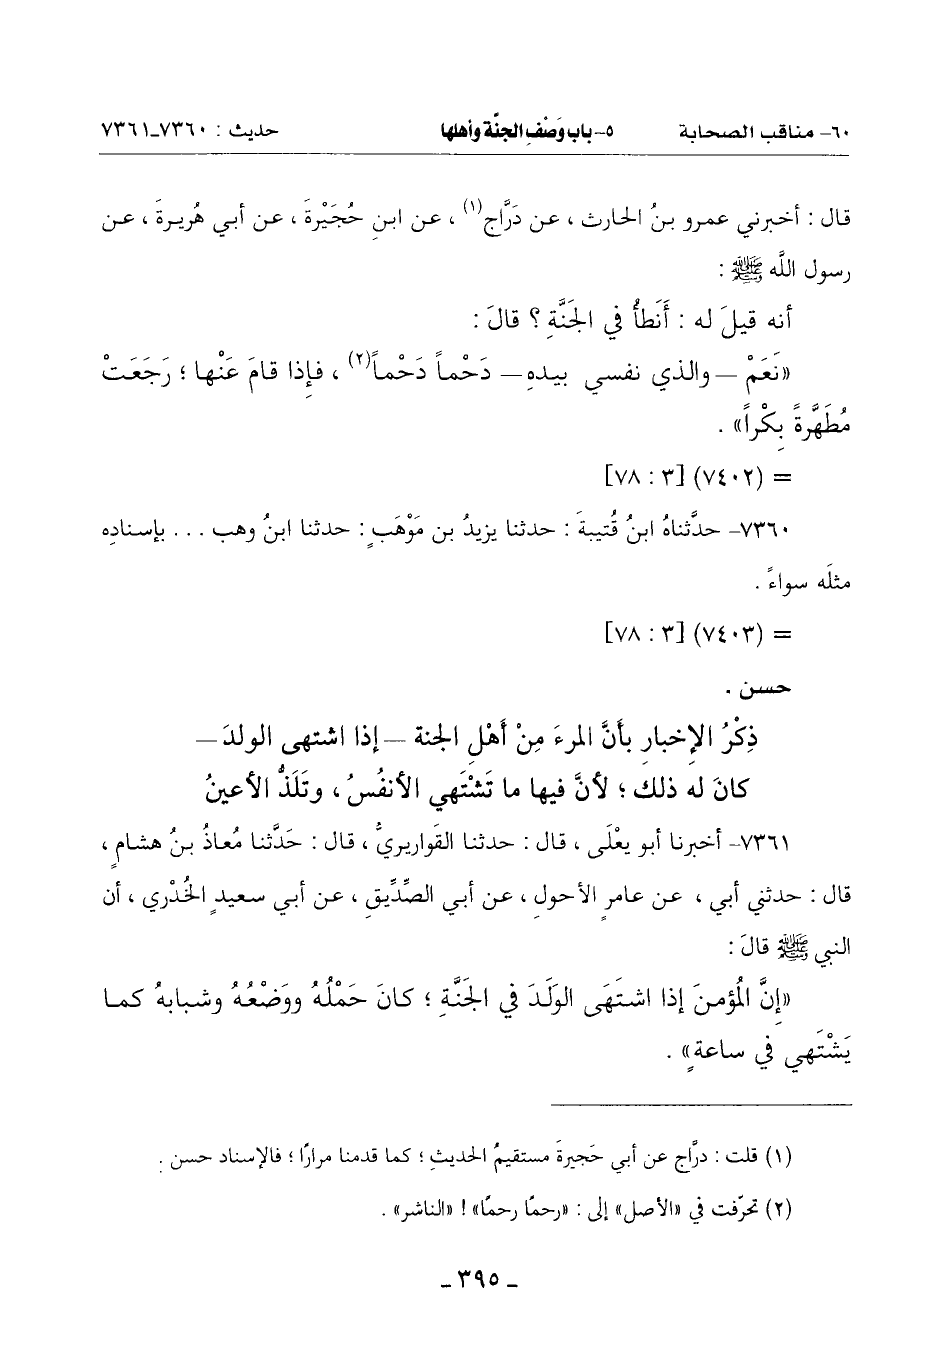 ٦٠- مناقب الصحابة ٥- باب وَصْفِ الجنَّة وأهلها حديث : ٧٣٦٠-٧٣٦١
قال : أخبرني عمرو بنُ الحارث ، عن دَرَّاج(١) ، عن ابنِ حُجَيْرةَ ، عن أبي هُريرةَ ، عن
رسول اللَّه ﷺ :
أنه قيلَ له : أَنَطأُ في الجَنَّةِ ؟ قالَ :
«نَعَمْ — والذي نفسي بيدهِ — دَحْماً دَحْماً(٢) ، فإذا قامَ عَنْها ؛ رَجَعَتْ
مُطَهَّرةً بِكْراً» .
= (٧٤٠٢) [٣ : ٧٨]
٧٣٦٠- حدَّثناهُ ابنُ قُتيبةَ : حدثنا يزيدُ بن مَوْهَبٍ : حدثنا ابنُ وهب ... بإسنادِه
مثلَه سواءً .
= (٧٤٠٣) [٣ : ٧٨]
حسن .
ذِكْرُ الإخبارِ بأَنَّ المرءَ مِنْ أَهْلِ الجنة — إذا اشتهى الولدَ —
كانَ له ذلك ؛ لأنَّ فيها ما تَشْتَهي الأنفُسُ ، وتَلَذُّ الأعينُ
٧٣٦١- أخبرنا أبو يعْلَى ، قال : حدثنا القَواريريُّ ، قال : حَدَّثنا مُعاذُ بنُ هشامٍ ،
قال : حدثني أبي ، عن عامرٍ الأحولِ ، عن أبي الصِّدِّيقِ ، عن أبي سعيدٍ الخُدْري ، أن
النبي ﷺ قالَ :
«إنَّ المُؤمنَ إذا اشتَهَى الوَلَدَ في الجَنَّةِ ؛ كانَ حَمْلُهُ ووَضْعُهُ وشبابهُ كما
يَشْتَهي في ساعةٍ» .
(١) قلت : درَّاج عن أبي حَجيرةَ مستقيمُ الحديثِ ؛ كما قدمنا مرارًا ؛ فالإسناد حسن .
(٢) تحرّفت في «الأصل» إلى : «رحمًا رحمًا» ! «الناشر» .
- ٣٩٥ -